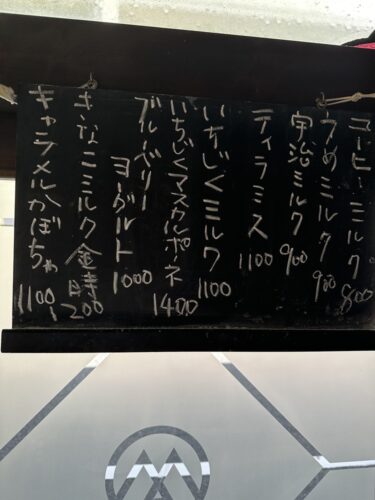 コーヒーミルク 800
うめミルク 900
宇治ミルク 900
ティラミス 1100
いちじくミルク 1100
いちじくマスカルポーネ 1400
ブルーベリーヨーグルト 1000
きなこミルク金時 1200
キャラメルかぼちゃ 1100